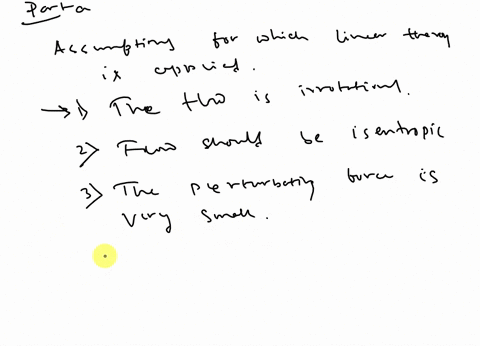 Part a
Assumptions for which linear theory
is applied.
→ 1) The flow is irrotational.
2) Flow should be isentropic
3) The perturbating force is
very small.